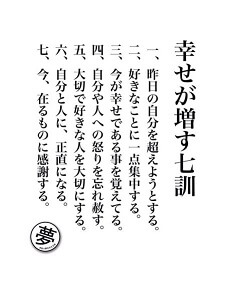 幸せが増す七訓
一、昨日の自分を超えようとする。
二、好きなことに一点集中する。
三、今が幸せである事を覚えてる。
四、自分や人への怒りを忘れ赦す。
五、大切で好きな人を大切にする。
六、自分と人に、正直になる。
七、今、在るものに感謝する。
夢